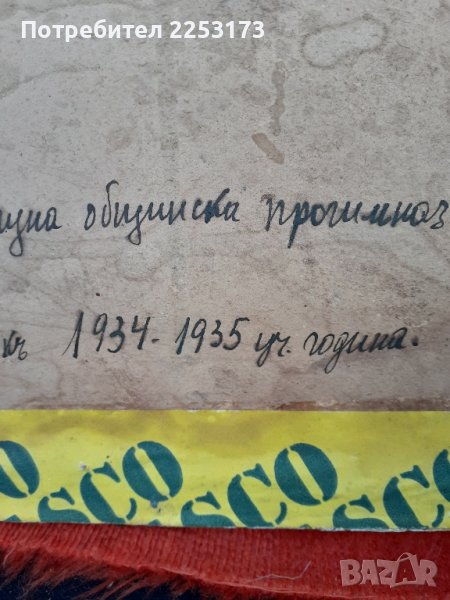 Потребител 2253173
общинска прогимназ
къ 1934-1935 уч. година.
SCO
ESCO
SCO
BAZAR